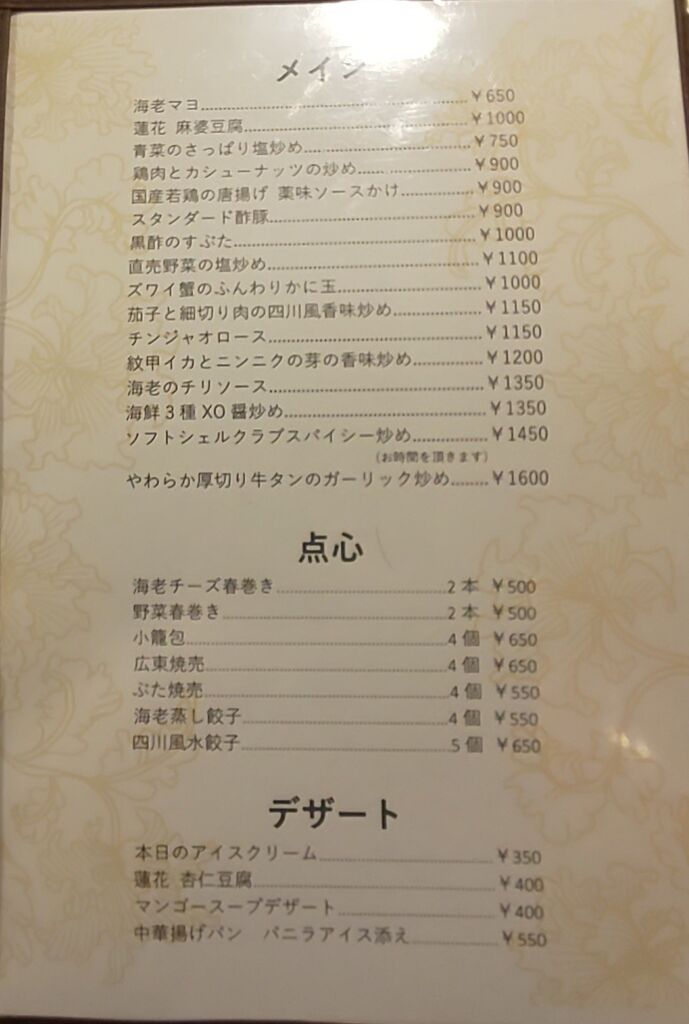 メイン
海老マヨ ¥650
蓮花 麻婆豆腐 ¥1000
青菜のさっぱり塩炒め ¥750
鶏肉とカシューナッツの炒め ¥900
国産若鶏の唐揚げ 薬味ソースかけ ¥900
スタンダード酢豚 ¥900
黒酢のすぶた ¥1000
直売野菜の塩炒め ¥1100
ズワイ蟹のふんわりかに玉 ¥1000
茄子と細切り肉の四川風香味炒め ¥1150
チンジャオロース ¥1150
紋甲イカとニンニクの芽の香味炒め ¥1200
海老のチリソース ¥1350
海鮮3種XO醤炒め ¥1350
ソフトシェルクラブスパイシー炒め ¥1450
(お時間を頂きます)
やわらか厚切り牛タンのガーリック炒め ¥1600
点心
海老チーズ春巻き 2本 ¥500
野菜春巻き 2本 ¥500
小籠包 4個 ¥650
広東焼売 4個 ¥650
ぶた焼売 4個 ¥550
海老蒸し餃子 4個 ¥550
四川風水餃子 5個 ¥650
デザート
本日のアイスクリーム ¥350
蓮花 杏仁豆腐 ¥400
マンゴースープデザート ¥400
中華揚げパン バニラアイス添え ¥550